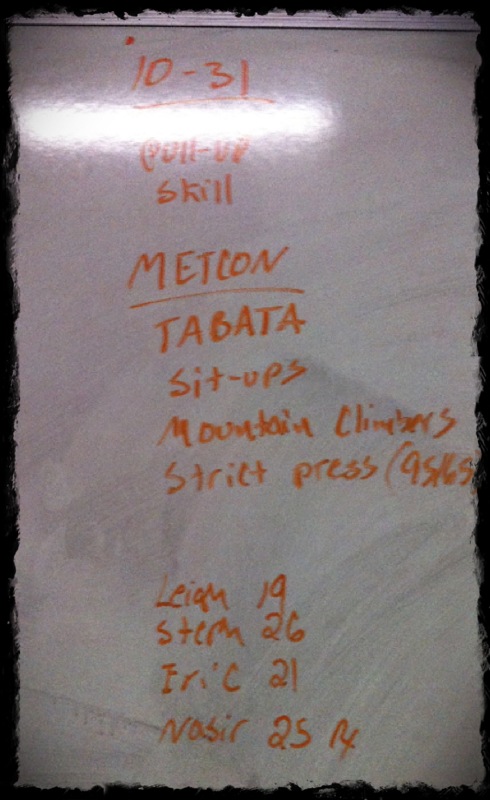 10-31
Pull-up
skill
METCON
TABATA
Sit-ups
Mountain Climbers
Strict press (95/65
Leigh 19
Steph 26
Eric 21
Nasir 25 Rx